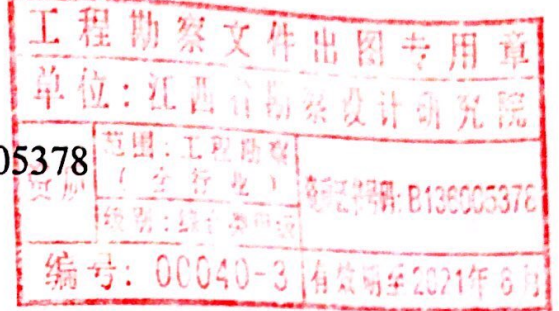 工程勘察文件出图专用章
单位:江西省勘察设计研究院
05378
范围:工程勘察
(全行业)
级别:综合类甲级
资质证书号码:B136005378
编号:00040-3
有效期至2021年6月